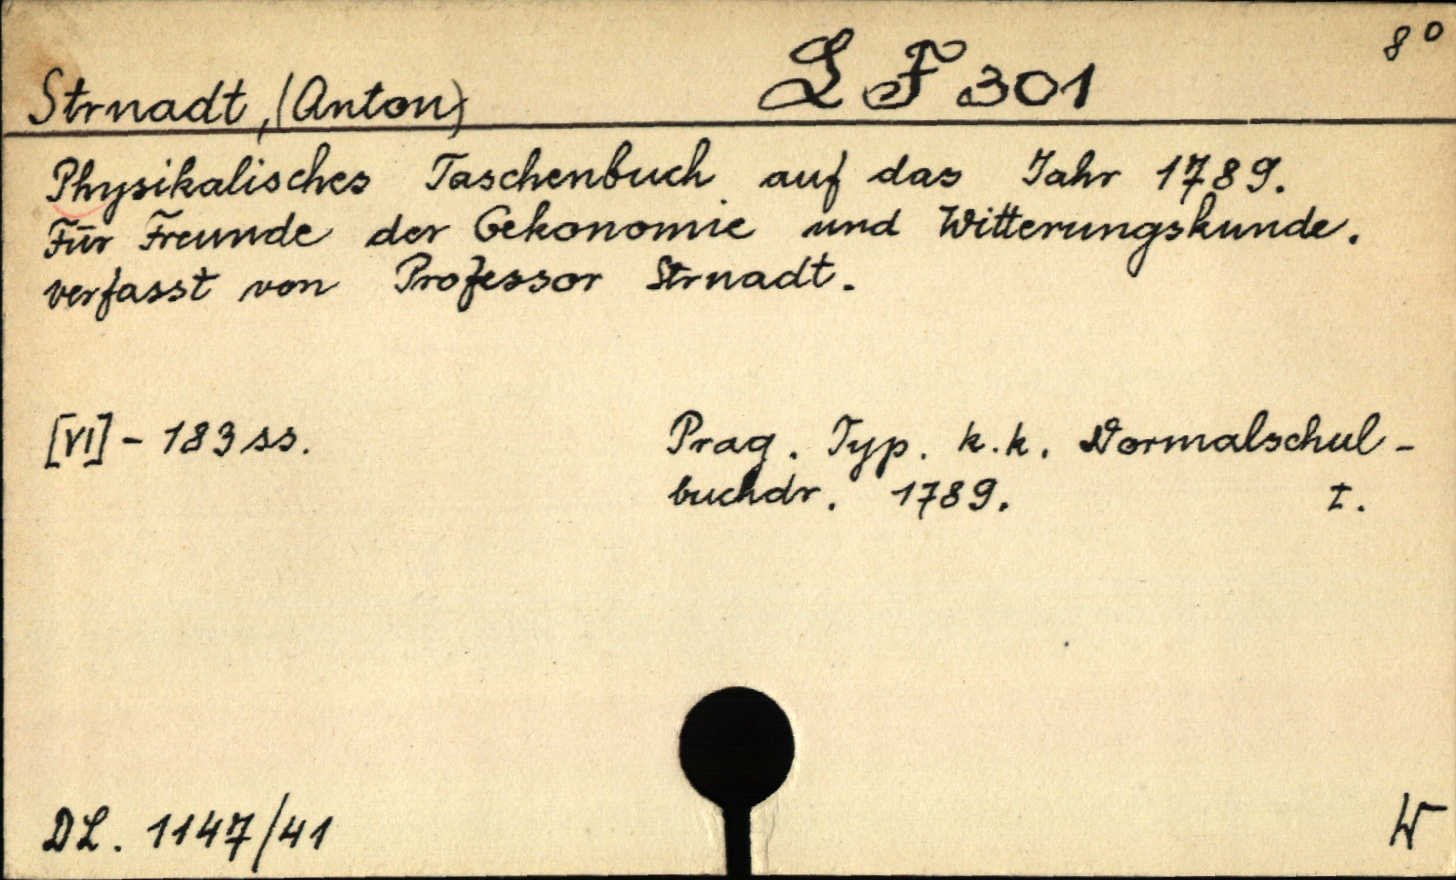 8°
Strnadt, (Anton) L F 301
Physikalisches Taschenbuch auf das Jahr 1789.
Für Freunde der Oekonomie und Witterungskunde.
verfasst von Professor Strnadt.
[VI] - 183 ss. Prag. Typ. k.k. Normalschul-
buchdr. 1789. I.
DL. 1147/41 W